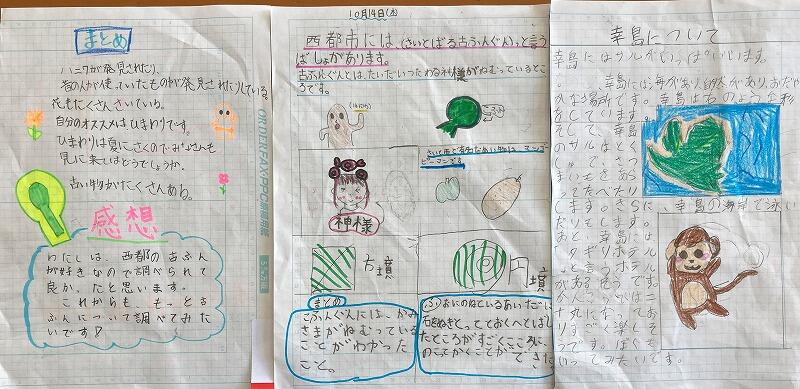 まとめ
ハニワが発見されたり、
昔の人が使っていたものが発見されたりしている。
花もたくさんさいている。
自分のオススメはひまわりです。
ひまわりは夏にさくのでみなさんも
見に来てはどうでしょうか。
古い物がたくさんあるね。
感想
わたしは、西都の古ふん
が好きなので調べられて
良かったと思います。
これからも、もっと古
ふんについて調べてみた
いです!
10月14日(木)
西都市には、(さいとばる古ふんぐん)と言う
ばしょがあります。
古ふんぐんとは、だいだいつたわる神様がねむっているとこ
ろです。
さいと市で有名な食い物は、マンゴー
ピーマンです
神様
方墳
円墳
まとめ
こふんぐんには、かみ
さまがねむっている
ことがわかった
こと。
ふりおにのねているあいだに
石をぬきとっておくへとばし
たところがすごくこころに
のこてかくことができた
幸島について
幸島にはサルがいっぱいいます。
幸島には、海があり、自然があり、おだや
かな場所です。幸島は右のような形
をしています。
そして、幸島
のサルはとく
しゅで、さつ
まいもをあら
ってたべたり
します。さらに、幸島の海岸で泳い
だりもします。
あと、幸島には
ホテル
と言うホテル
があるそうです。
かんこうバスは二
十九になってお
りすべて楽しそ
うです。ぼくも
いってみたいです。